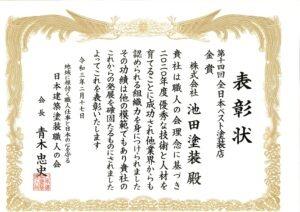 表彰状
第十四回 全日本ベスト塗装店
金賞
株式会社 池田塗装 殿
貴社は職人の会理念に基づき
二〇二〇年度優秀な技術と人材を
育てることに成功され他業界からも
認められる組織力を身につけられました
その功績は他の模範でもあり貴社の
これからの発展を確固たるものにされました
よってこれを表彰いたします
令和三年二月十七日
地域に根付く職人仕事と日本の心を守る
日本建築塗装職人の会
会長 青木忠史